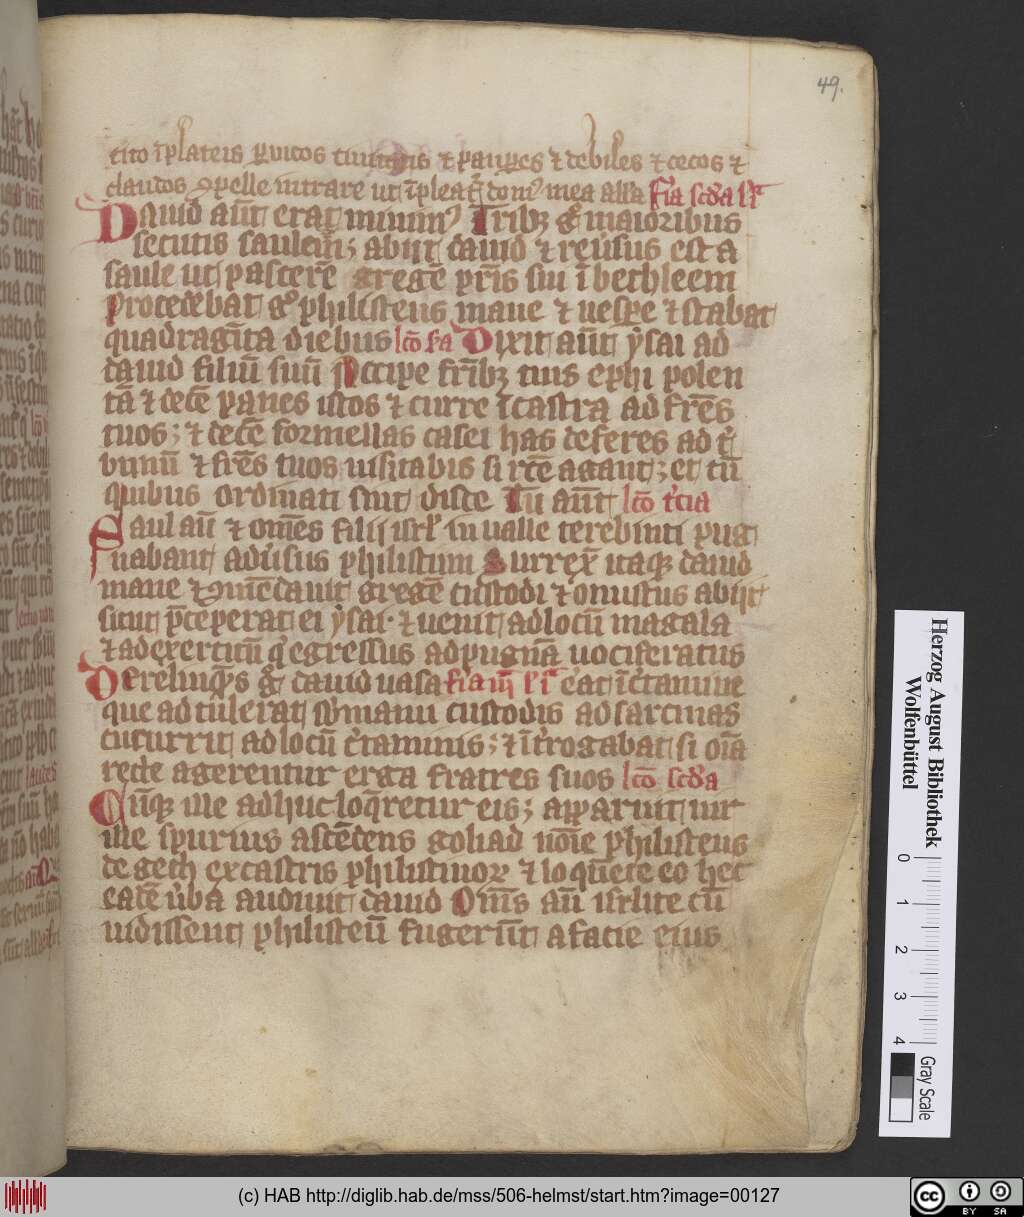 49.
cito ī plateis ⁊ vicos ciuitatis ⁊ paupes ⁊ debiles ⁊ cecos ⁊
claudos ꝯpelle intrare ut īpleat᷑ dom᷒ mea alla fia scd'a
Dauid aūt erat minim᷒ Tribꝫ g° maioribus
secutis saulem; abiit dauid ⁊ reu͛sus est a
saule ut pasceret gregē pr̄is sui ī bethleem
Procedebat g° philisteus mane ⁊ uespe ⁊ stabat
quadragīta diebus lc̄o Dixit aūt ẏsai ad
dauid filiū suū Accipe fr̄ibꝫ tuis ephi polen
tā ⁊ decē panes istos ⁊ curre ī castra ad fr̄es
tuos; ⁊ decē formellas casei has deferes ad t͛
bunū ⁊ fr̄es tuos uisitabis si rc̄e agant; et cū
quibus ordinati sint disce lc̄o t͛cia
Saul aū ⁊ om̄es filij isrl̓ in ualle terebinti pug
nabant adu͛sus philistim Surrex̄ itaqꝫ dauid
mane ⁊ ꝯmēdauit gregē custodi ⁊ onustus abiit
sicut p̄ceperat ei ẏsai· ⁊ uenit ad locū magala
⁊ ad exercitū q͛ egressus ad pugnā uociferatus
Derelinq̄s g° dauid uasa fia iij eat ī c͛tamine
que ad tulerat sb manu custodis ad sarcinas
cucurrit ad locū c͛taminis; ⁊ īt͛rogabat si oīa
recte agerentur erga fratres suos lc̄o scd'a
Cūqꝫ ille adhuc loq̄retur eis; apparuit uir
ille spurius ascēdens goliad noīe philisteus
de geth ex castris philistinoꝝ ⁊ loquēte eo hec
eadē u͛ba audiuit dauid Om̄s aū isrl̓ite cū
uidissent philisteū fugerūt a facie eius
Herzog August Bibliothek
Wolfenbüttel
0 1 2 3 4
Gray Scale
(c) HAB http://diglib.hab.de/mss/506-helmst/start.htm?image=00127
cc BY SA